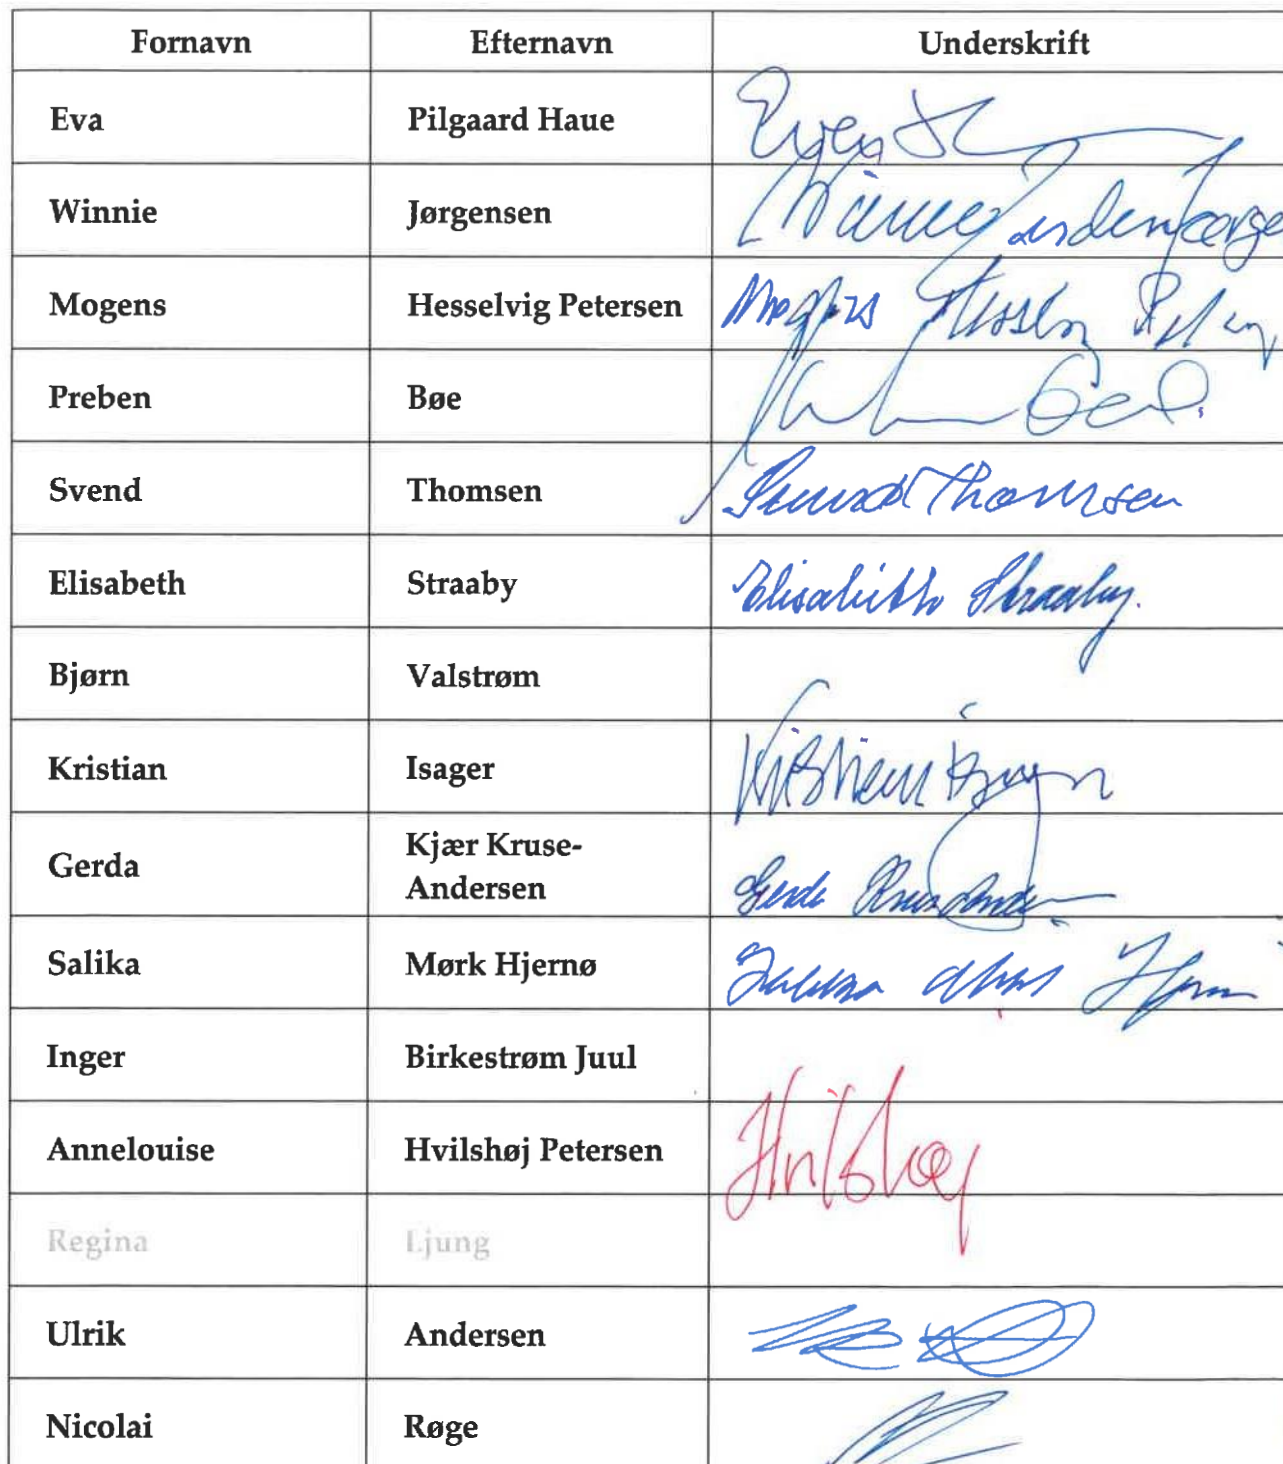 Fornavn Efternavn Underskrift
Eva Pilgaard Haue Eva
Winnie Jørgensen Winnie
Mogens Hesselvig Petersen Mogens
Preben Bøe
Svend Thomsen Svend Thomsen
Elisabeth Straaby Elisabeth Straaby.
Bjørn Valstrøm
Kristian Isager Kristian Isager
Gerda Kjær Kruse-
Andersen Gerda
Salika Mørk Hjernø
Inger Birkestrøm Juul
Annelouise Hvilshøj Petersen Hvilshøj
Regina Ljung
Ulrik Andersen
Nicolai Røge